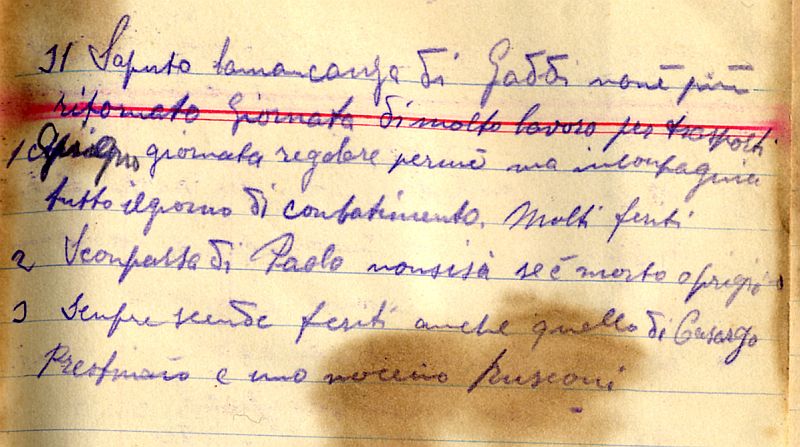 31 Saputo lamancanza di Gaddi none più
ritornato Giornata di molto lavoro per trasporti
1 Giugno giornata regolare permè ma incompagnia
tutto ilgiorno di conbatimento. Molti feriti
2 Sconpassa di Paolo nonsisà se è morto o prigio
3 Senpre scende feriti anche quello di Casargo
e uno Rusconi